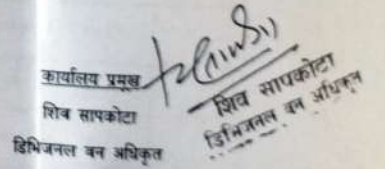 कार्यालय प्रमुख
शिव सापकोटा
डिभिजनल वन अधिकृत
शिव सापकोटा
डिभिजनल वन अधिकृत